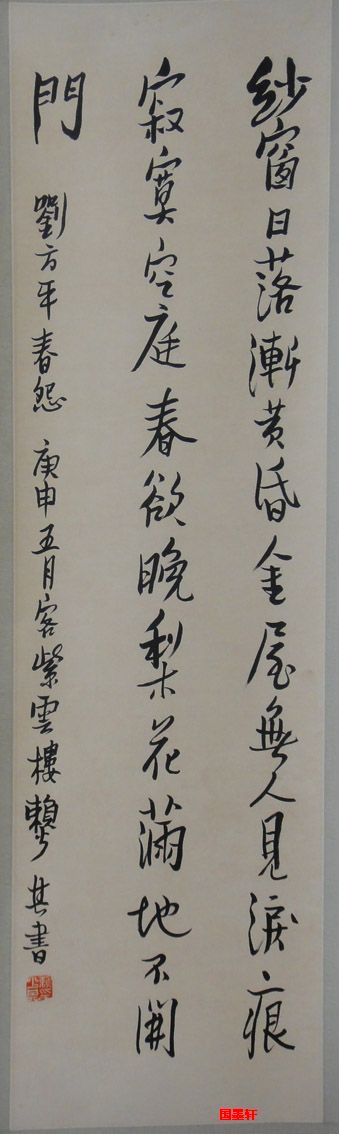 紗窗日落漸黃昏金屋無人見淚痕
寂寞空庭春欲晚梨花滿地不開
門
劉方平春怨 庚申五月客紫雲樓賴少其書
国墨轩